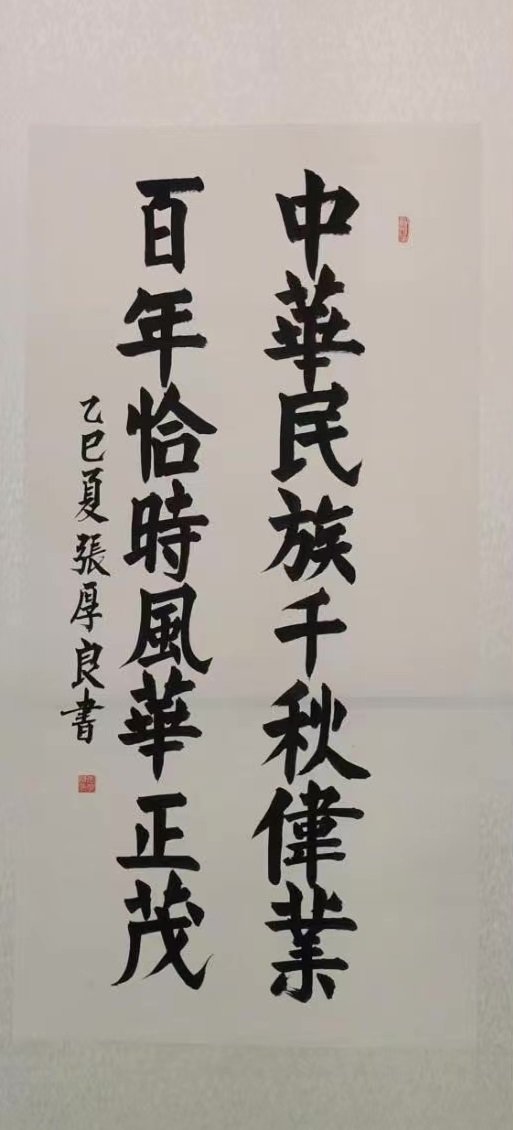 中華民族千秋偉業
百年恰時風華正茂
乙巳夏張厚良書